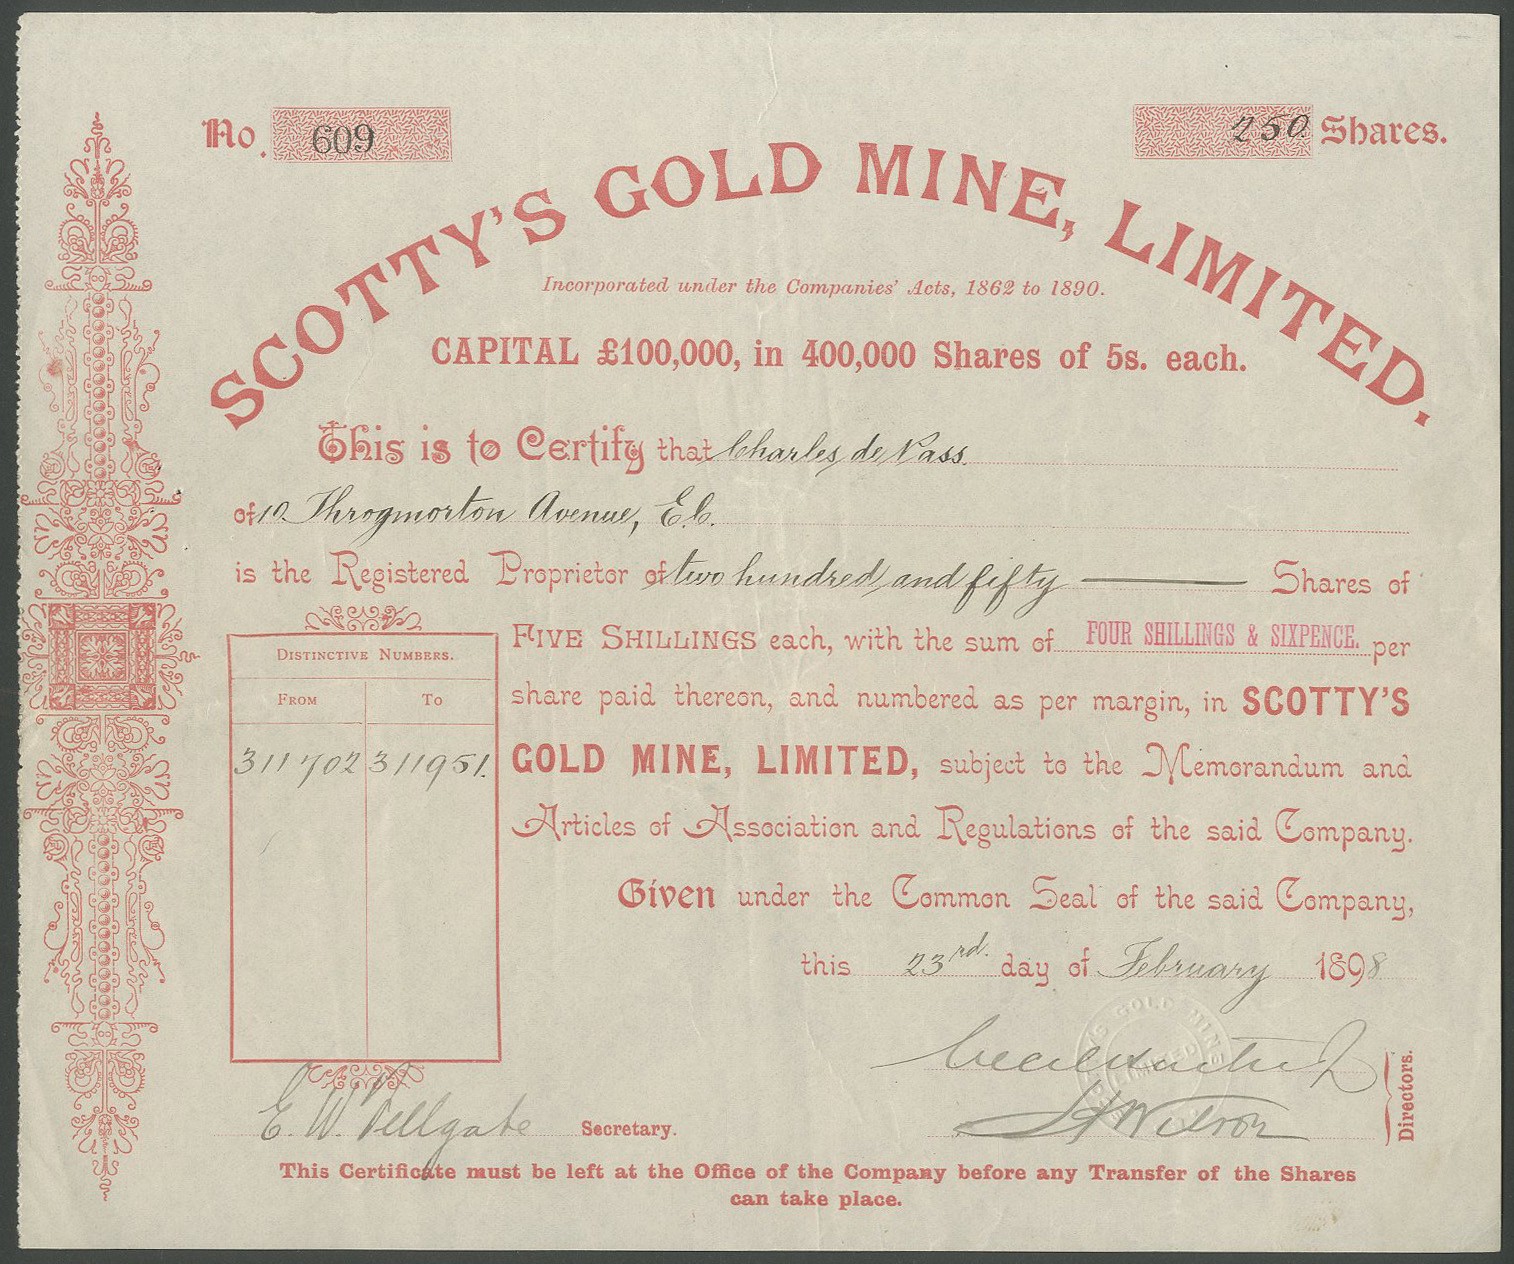 No. 609
250 Shares.
SCOTTY'S GOLD MINE, LIMITED.
Incorporated under the Companies' Acts, 1862 to 1890.
CAPITAL £100,000, in 400,000 Shares of 5s. each.
This is to Certify that Charles de Pass
of 10 Throgmorton Avenue, E.C.
is the Registered Proprietor of two hundred and fifty Shares of
FIVE SHILLINGS each, with the sum of FOUR SHILLINGS & SIXPENCE. per
share paid thereon, and numbered as per margin, in SCOTTY'S
GOLD MINE, LIMITED, subject to the Memorandum and
Articles of Association and Regulations of the said Company.
DISTINCTIVE NUMBERS.
FROM TO
311702 311951.
Given under the Common Seal of the said Company,
this 23rd. day of February 1898
GOLD MINE
LIMITED
Wilson
Directors.
E. W. Fellgate Secretary.
This Certificate must be left at the Office of the Company before any Transfer of the Shares
can take place.